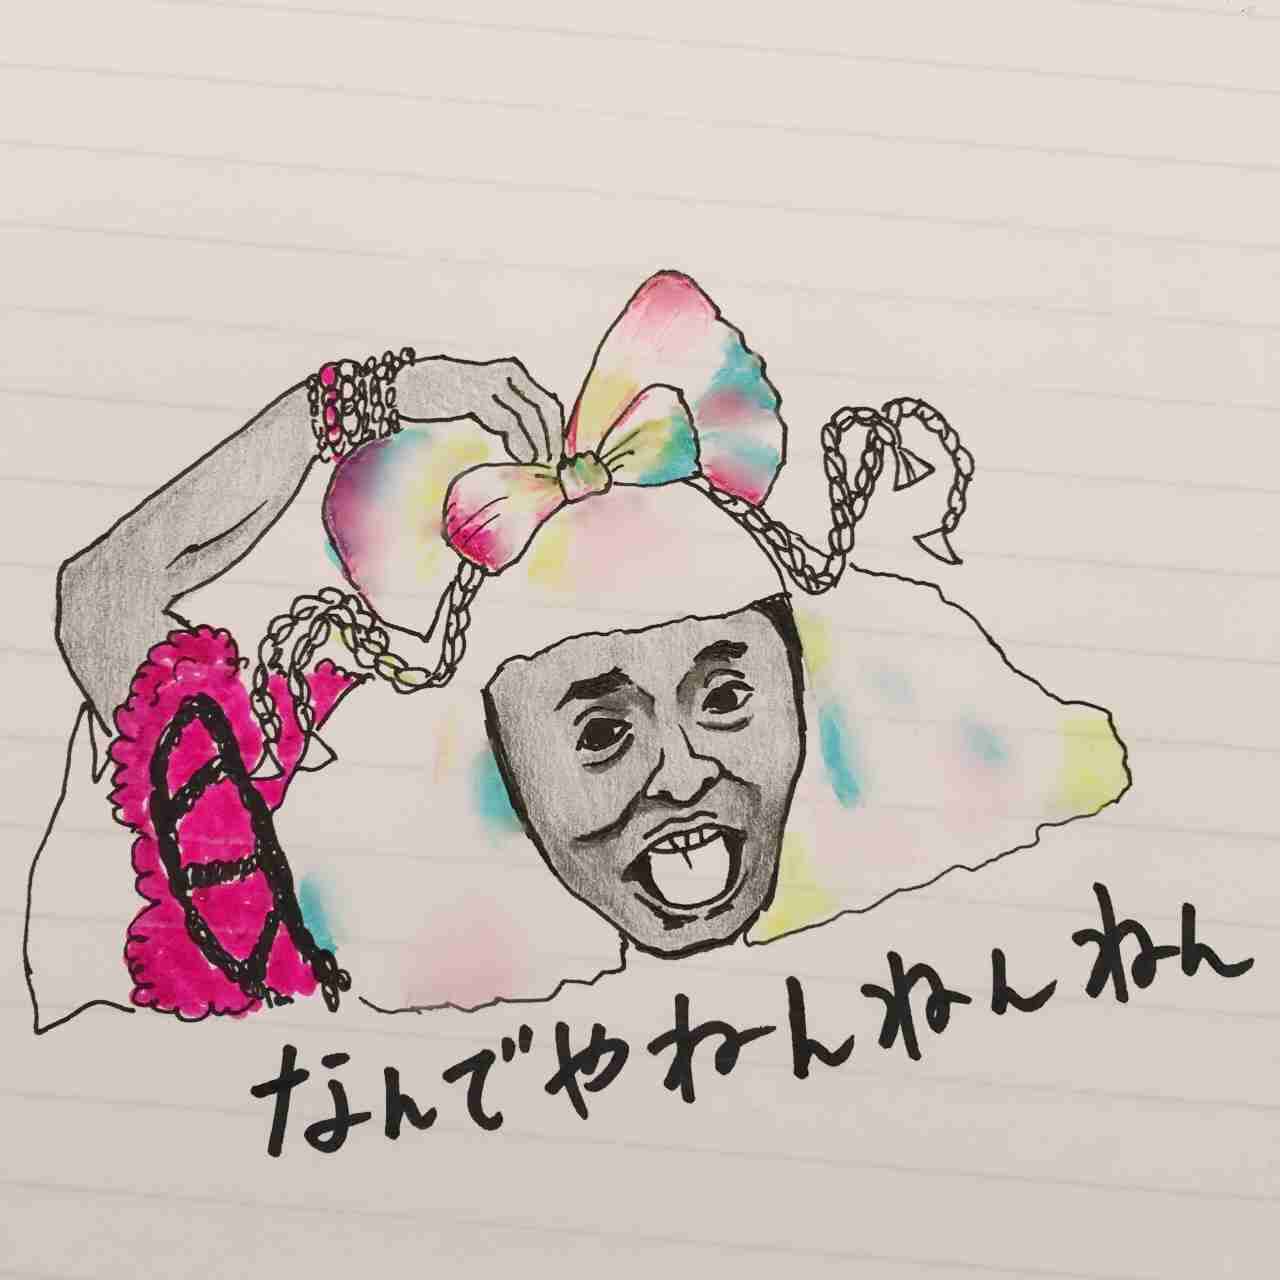 なんでやねんねんねん